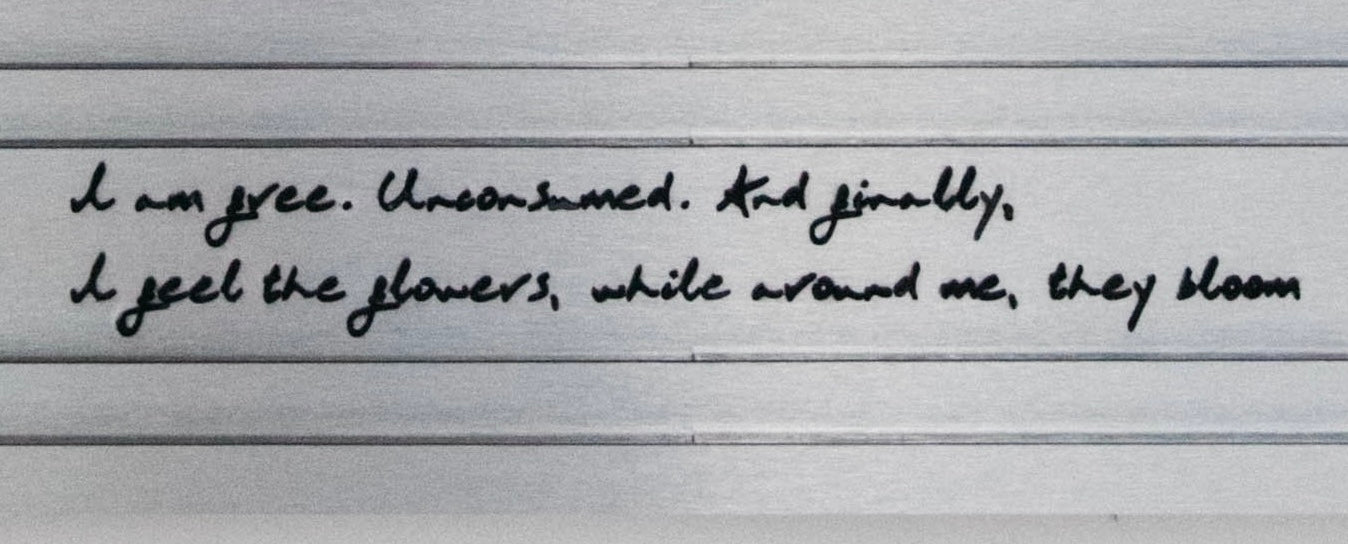 I am free. Unconsumed. And finally,
I feel the flowers, while around me, they bloom